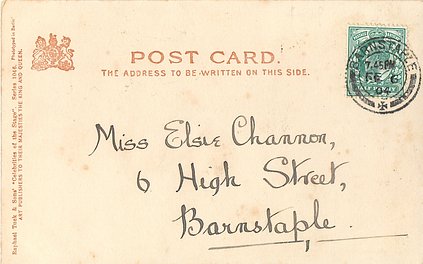 POST CARD.
THE ADDRESS TO BE WRITTEN ON THIS SIDE.
BARNSTAPLE
7.45PM
FE 6
04
Miss Elsie Channon,
6 High Street,
Barnstaple.
Raphael Tuck & Sons' "Celebrities of the Stage" Series
ART PUBLISHERS TO THEIR MAJESTIES THE KING AND QUEEN.